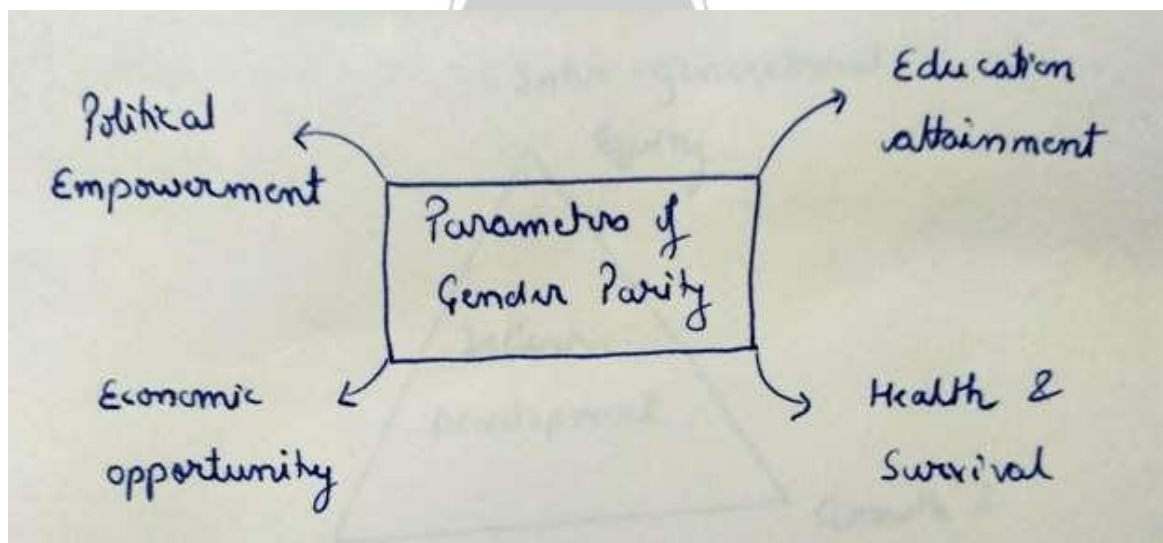 Political
Empowerment
Education
attainment
Parameters of
Gender Parity
Economic
opportunity
Health &
Survival